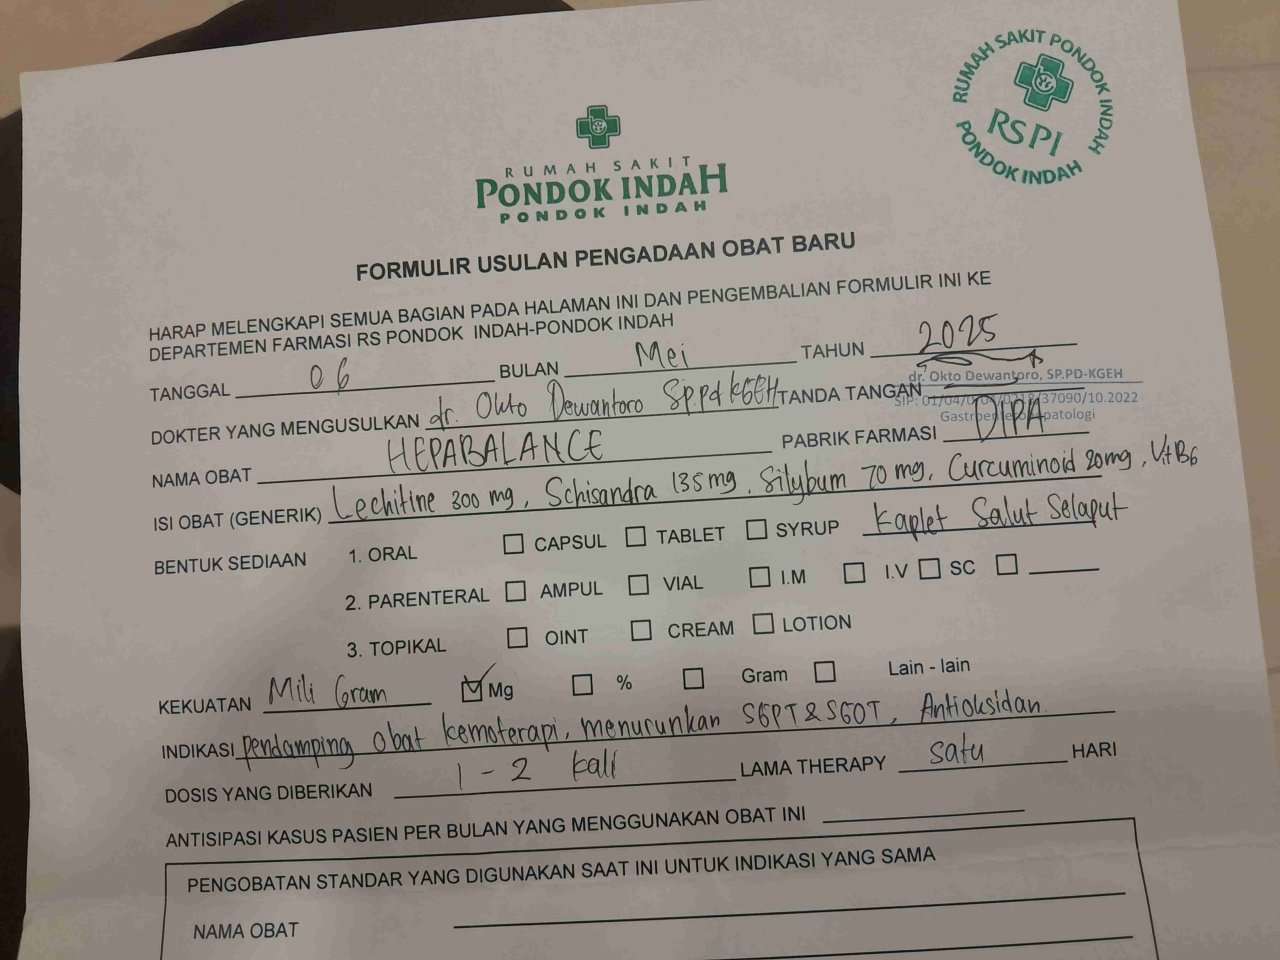 RUMAH SAKIT PONDOK INDAH
RSPI
PONDOK INDAH
RUMAH SAKIT
PONDOK INDAH
PONDOK INDAH
FORMULIR USULAN PENGADAAN OBAT BARU
HARAP MELENGKAPI SEMUA BAGIAN PADA HALAMAN INI DAN PENGEMBALIAN FORMULIR INI KE
DEPARTEMEN FARMASI RS PONDOK INDAH-PONDOK INDAH
TANGGAL 06 BULAN Mei TAHUN 2025
DOKTER YANG MENGUSULKAN dr. Okto Dewantoro Sp.Pd KGEH TANDA TANGAN
dr. Okto Dewantoro, SP.PD-KGEH
SIP: 37090/10.2022
NAMA OBAT HEPABALANCE PABRIK FARMASI DIPA
ISI OBAT (GENERIK) Lechitine 300 mg, Schisandra 135 mg, Silybum 70 mg, Curcuminoid 20 mg, Vit B6
BENTUK SEDIAAN 1. ORAL CAPSUL TABLET SYRUP Kaplet Salut Selaput
2. PARENTERAL AMPUL VIAL I.M I.V SC
3. TOPIKAL OINT CREAM LOTION
KEKUATAN Mili Gram Mg % Gram Lain - lain
INDIKASI pendamping obat kemoterapi, menurunkan SGPT & SGOT, Antioksidan
DOSIS YANG DIBERIKAN 1 - 2 kali LAMA THERAPY satu HARI
ANTISIPASI KASUS PASIEN PER BULAN YANG MENGGUNAKAN OBAT INI
PENGOBATAN STANDAR YANG DIGUNAKAN SAAT INI UNTUK INDIKASI YANG SAMA
NAMA OBAT